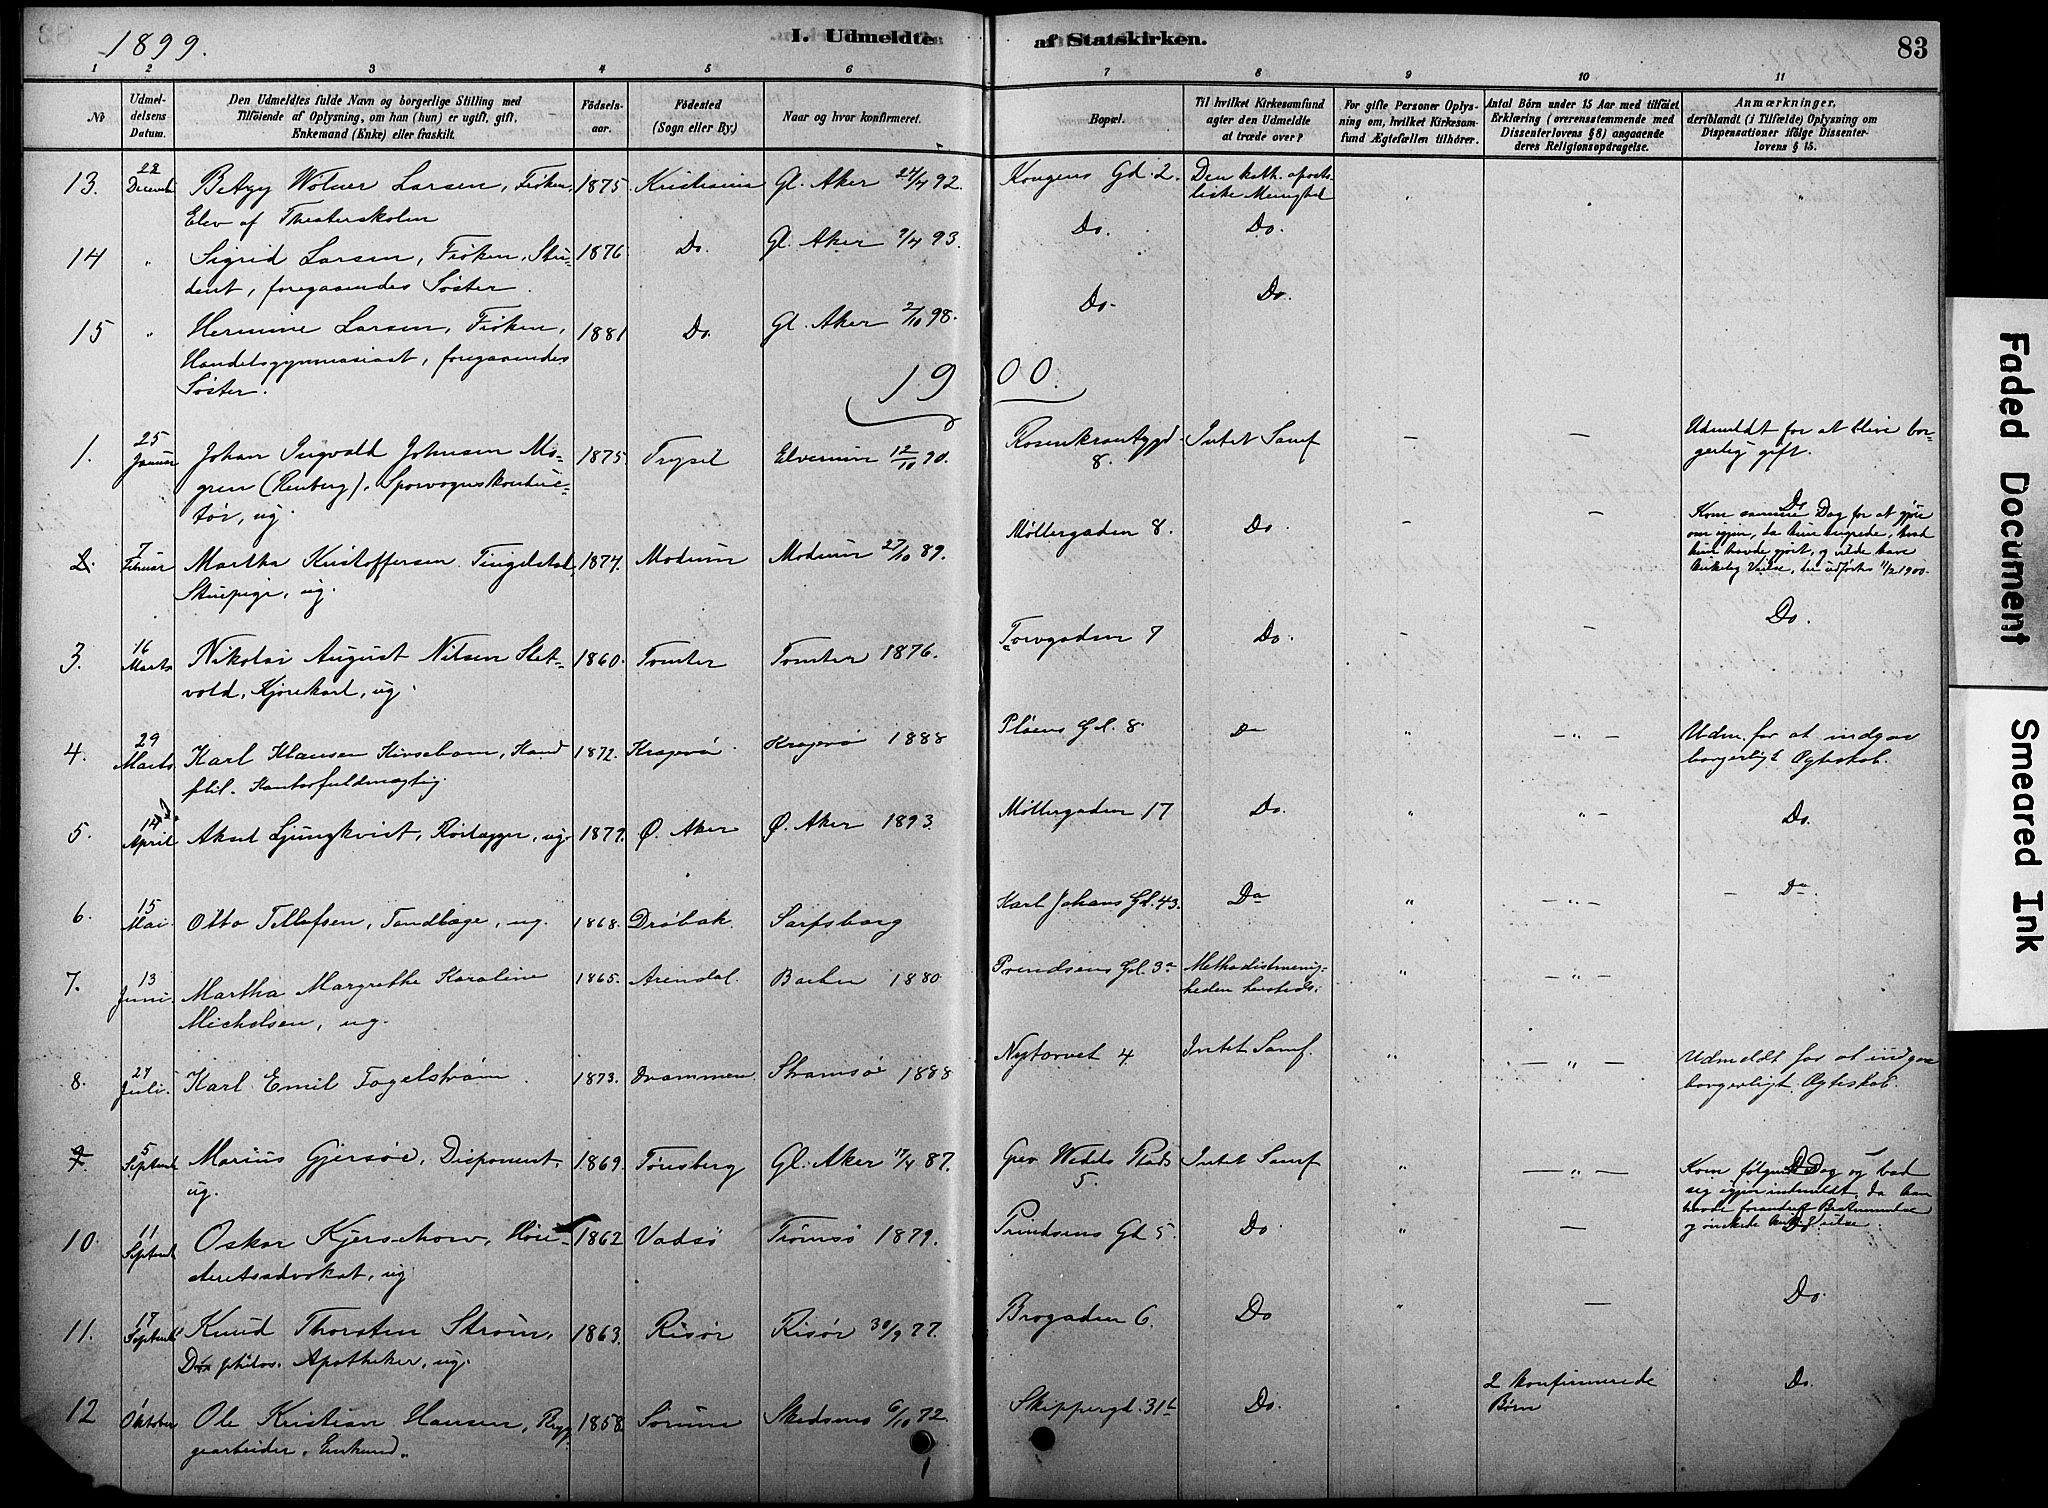 1899.
I. Udmeldte af Statskirken.
83
1 2 3 4 5 6 7 8 9 10 11
No
Udmeldelsens Datum.
Den Udmeldtes fulde Navn og borgerlige Stilling med
Tilföiende af Oplysning, om han (hun) er ugift, gift,
Enkemand (Enke) eller fraskilt.
Födselsaar.
Födested
(Sogn eller By.)
Naar og hvor konfirmeret.
Bopæl.
Til hvilket Kirkesamfund
agter den Udmeldte
at træde over?
For gifte Personer Oplysning om, hvilket Kirkesamfund Ægtefællen tilhörer.
Antal Börn under 15 Aar med tilföiet
Erklæring (overensstemmende med
Dissenterlovens § 8) angaaende
deres Religionsopdragelse.
Anmærkninger,
deriblandt (i Tilfælde) Oplysning om
Dispensationer ifölge Dissenterlovens § 15.
13. 22 Decemb Betzy Wolner Larsen, Frøken, 1875. Kristiania Gl. Aker 24/4 92. Kongens Gd. 2. Den kath. apostoliske Menighed
Elev af Theaterskolen
14 " Sigrid Larsen, Frøken, Stu- 1876 Do. Gl. Aker 9/4 93. Do. Do.
dent, foregaaendes Søster.
15 " Hermine Larsen, Frøken, 1881 Do. Gl. Aker 2/10 98. Do. Do.
Handelsgymnasiast, foregaaendes
Søster.
1900.
1. 25 Januar Johan Ingvald Johnsen Mo- 1875. Trysil Elverum 12/10 90. Rosenkrantzgd. 8. Intet Samf – – Udmeldt for at blive bor-
gren (Renberg), Sporvognskonduc- gerlig gift.
tør, ug.
2. 7 Februar Martha Kristoffersen Tingelstad, 1874. Modum Modum 27/10 89. Møllergaden 8. Do. – – Do
Stuepige, ug.
Kom samme Dag for at gjøre
om igjen, da hun angrede, hvad
hun havde gjort, og vilde have
kirkelig Vielse, der udførtes 11/2 1900.
3. 16 Marts Nikolai August Nilsen Slet- 1860. Tomter Tomter 1876. Torvgaden 7 Do. – – Do.
vold, Kjørekarl, ug.
4. 29 Marts Karl Klausen Kirsebom, Kand 1872. Kragerø Kragerø 1888 Pløens Gd. 8 Do " – " – Udm. for at indgaa
phil. Kontorfuldmægtig. borgerligt Ægteskab.
5. April Aksel Ljungkvist, Rørlægger, ug. 1879. Ø. Aker Ø. Aker 1893. Møllergaden 17 Do. " " – Do.
6. 15 Mai Otto Tellefsen, Tandlæge, ug. 1868. Drøbak. Sarpsborg Karl Johans Gd. 43. Do " – " – – Do
7. 13 Juni. Martha Margrethe Karoline 1865. Arendal. Barbu 1880 Prindsens Gd. 3a Methodistmenig- " – " – "
Michelsen, ug. heden hersteds.
8. 27 Juli. Karl Emil Fogelstrøm. 1873. Drammen. Strømsø 1888 Nytorvet 4 Intet Samf. " – " – Udmeldt for at indgaa
borgerligt Ægteskab.
9. 5 Septemb Marius Gjersøe, Disponent, 1869. Tønsberg Gl. Aker 17/4 87. Grev Wedels Plads 5. Intet Samf " – " – Do
ug.
Kom følgende Dag og bad
sig igjen indmeldt, da han
havde forandret Bestemmelse
og ønskede kirkelig Vielse.
10. 11 Septemb Oskar Kjerschow, Høie- 1862 Vadsø Tromsø 1879. Prindsens Gd 5. Do " – Do
steretsadvokat, ug.
11. 17 Septemb Knud Thorsten Strøm, 1863. Risør Risør 30/9 77. Brogaden 6. Do " – Do.
Dr philos. Apotheker, ug.
12 1 Oktober Ole Kristian Hansen, Bryg- 1858. Sørum Skedsmo 6/10 72. Skippergd. 31b Do. " 2 konfirmerede Do.
geriarbeider, Enkemd. Børn
Faded Document
Smeared Ink